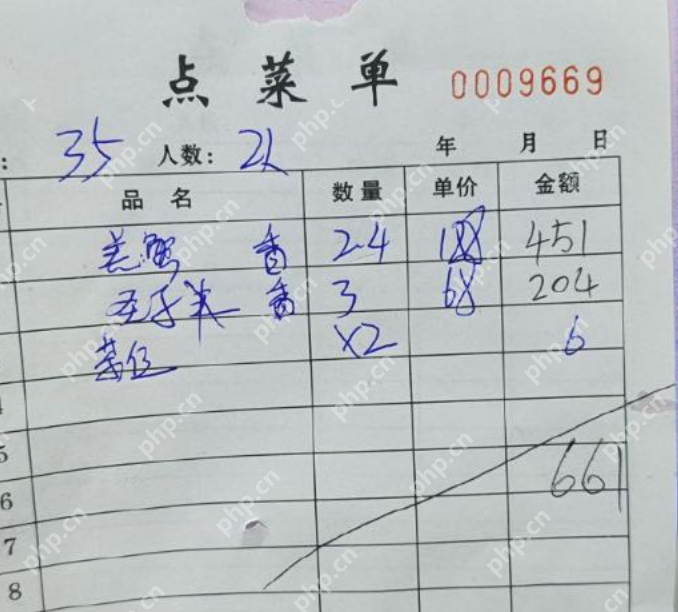 点菜单 0009669
: 35 人数: 2人 年 月 日
品名 数量 单价 金额
羔蟹 香 2.4 188 451
圣子米 香 3 68 204
茶位 x2 6
4
5
661
6
7
8